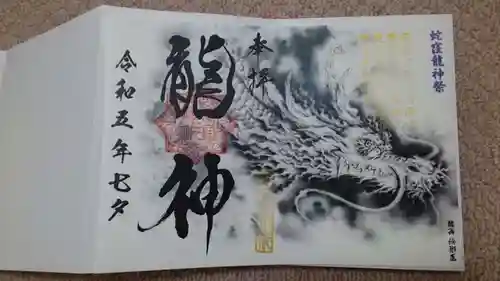 蛇窪龍神祭
奉拝
龍神
令和五年七夕